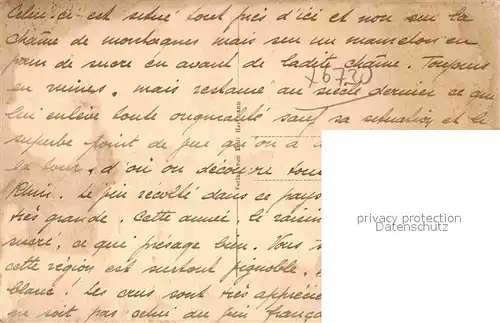 Celui-ci est situé tout près d'ici et non sur la
chaîne de montagnes mais sur un mamelon en
pain de sucre en avant de ladite chaîne. Toujours
en ruines, mais restauré au siècle dernier ce qui
lui enlève toute originalité sauf sa situation et le
superbe point de vue qu'on a
la tour, d'où on découvre tou
Rhin. Le vin récolté dans ce pays
très grande. Cette année, le raisin
sucré, ce qui présage bien. Vous
cette région est surtout vignoble.
blanc! Les crus sont très appréciés
ne soit pas celui du vin frança
X6730
privacy protection
Datenschutz